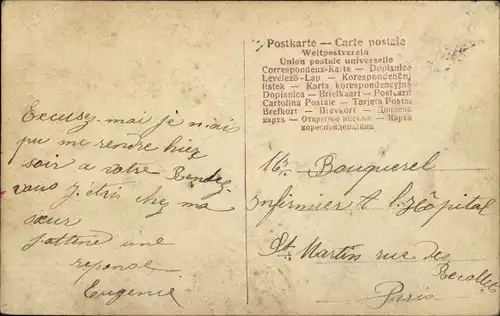 Postkarte — Carte postale
Weltpostverein
Union postale universelle
Correspondenz-Karte — Dopisnice
Levelező-Lap — Korespondenčni
listek — Karta korespondencyjna
Dopisnica — Briefkaart — Postcard
Cartolina Postale — Tarjeta Postal
Brefkort — Brevkort —
карта — Открытое письмо — Карта
кореспонденційна
Excusez-moi je n'ai
pu me rendre hier
soir a votre Rendez
vous j'étais chez ma
sœur
j'attend une
reponse
Eugenie
Mr Bouquerel
Infirmier à l'Hôpital
St Martin rue des
Recollets
Paris